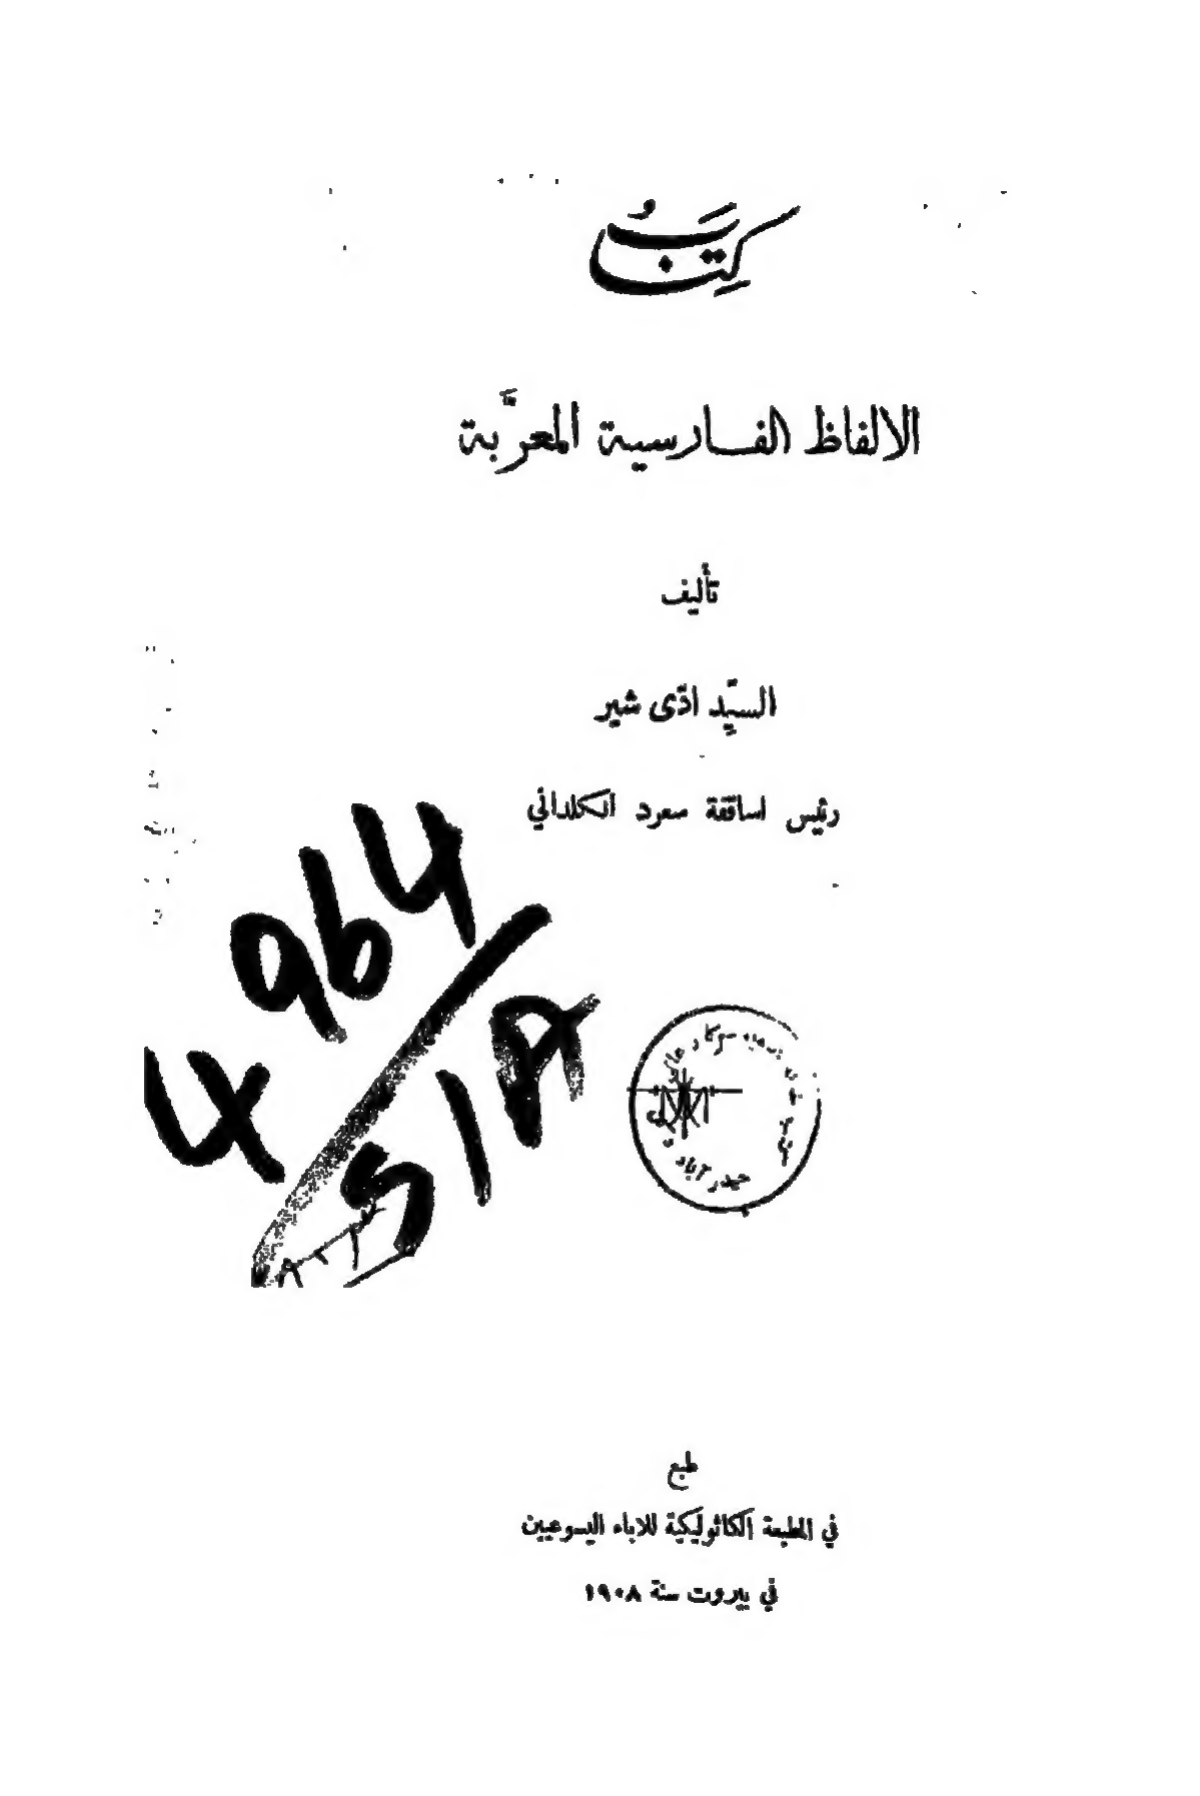 كِتَابُ
الالفاظ الفارسية المعرَّبة
تأليف
السيِّد ادّى شير
رئيس اساقفة سعرد الكلداني
4 964
S/A
حيدر آباد
طبع
في المطبعة الكاثوليكية للاباء اليسوعيين
في بيروت سنة ١٩٠٨